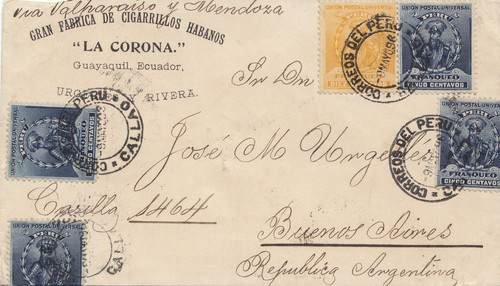 via Valparaiso y Mendoza
GRAN FÁBRICA DE CIGARRILLOS HABANOS
"LA CORONA."
Guayaquil, Ecuador,
RIVERA.
Sr Dn
José M
Casilla 1464
Buenos Aires
Republica Argentina
UNION POSTAL UNIVERSAL
PERU
UNION POSTAL UNIVERSAL
PERU
FRANQUEO
CINCO CENTAVOS
CORREOS DEL PERU
UNION POSTAL UNIVERSAL
PERU
FRANQUEO
CINCO CENTAVOS
CORREOS DEL PERU
FRANQUEO
CINCO CENTAVOS
PERU
CALLAO
UNION POSTAL UNIVERSAL
PERU